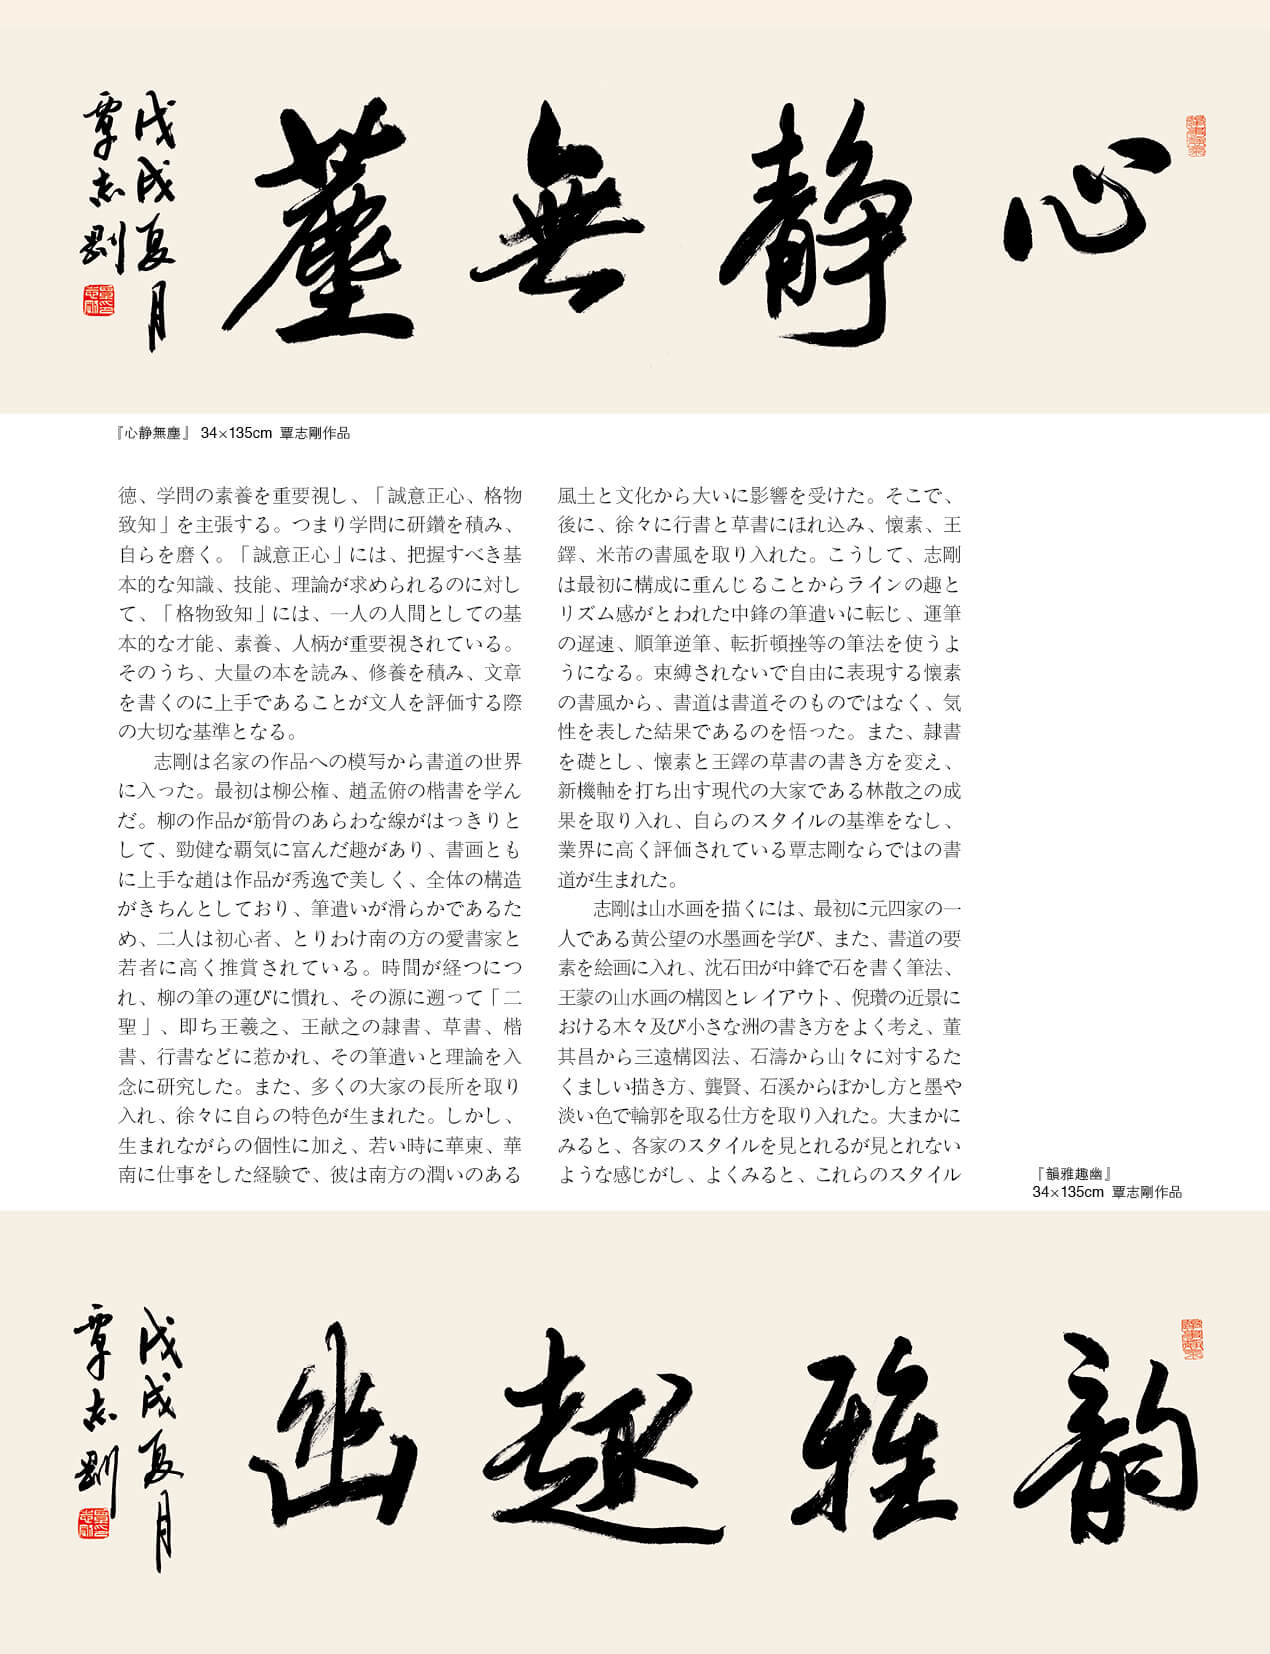 心静無塵
戊戌夏月
覃志剛
『心静無塵』 34×135cm 覃志剛作品
徳、学問の素養を重要視し、「誠意正心、格物
致知」を主張する。つまり学問に研鑽を積み、
自らを磨く。「誠意正心」には、把握すべき基
本的な知識、技能、理論が求められるのに対し
て、「格物致知」には、一人の人間としての基
本的な才能、素養、人柄が重要視されている。
そのうち、大量の本を読み、修養を積み、文章
を書くのに上手であることが文人を評価する際
の大切な基準となる。
志剛は名家の作品への模写から書道の世界
に入った。最初は柳公権、趙孟俯の楷書を学ん
だ。柳の作品が筋骨のあらわな線がはっきりと
して、勁健な覇気に富んだ趣があり、書画とも
に上手な趙は作品が秀逸で美しく、全体の構造
がきちんとしており、筆遣いが滑らかであるた
め、二人は初心者、とりわけ南の方の愛書家と
若者に高く推賞されている。時間が経つにつ
れ、柳の筆の運びに慣れ、その源に遡って「二
聖」、即ち王羲之、王献之の隷書、草書、楷
書、行書などに惹かれ、その筆遣いと理論を入
念に研究した。また、多くの大家の長所を取り
入れ、徐々に自らの特色が生まれた。しかし、
生まれながらの個性に加え、若い時に華東、華
南に仕事をした経験で、彼は南方の潤いのある
風土と文化から大いに影響を受けた。そこで、
後に、徐々に行書と草書にほれ込み、懐素、王
鐸、米芾の書風を取り入れた。こうして、志剛
は最初に構成に重んじることからラインの趣と
リズム感がとわれた中鋒の筆遣いに転じ、運筆
の遅速、順筆逆筆、転折頓挫等の筆法を使うよ
うになる。束縛されないで自由に表現する懐素
の書風から、書道は書道そのものではなく、気
性を表した結果であるのを悟った。また、隷書
を礎とし、懐素と王鐸の草書の書き方を変え、
新機軸を打ち出す現代の大家である林散之の成
果を取り入れ、自らのスタイルの基準をなし、
業界に高く評価されている覃志剛ならではの書
道が生まれた。
志剛は山水画を描くには、最初に元四家の一
人である黄公望の水墨画を学び、また、書道の要
素を絵画に入れ、沈石田が中鋒で石を書く筆法、
王蒙の山水画の構図とレイアウト、倪瓚の近景に
おける木々及び小さな洲の書き方をよく考え、董
其昌から三遠構図法、石濤から山々に対するた
くましい描き方、龔賢、石溪からぼかし方と墨や
淡い色で輪郭を取る仕方を取り入れた。大まかに
みると、各家のスタイルを見とれるが見とれない
ような感じがし、よくみると、これらのスタイル
『韻雅趣幽』
34×135cm 覃志剛作品
韵雅趣幽
戊戌夏月
覃志剛